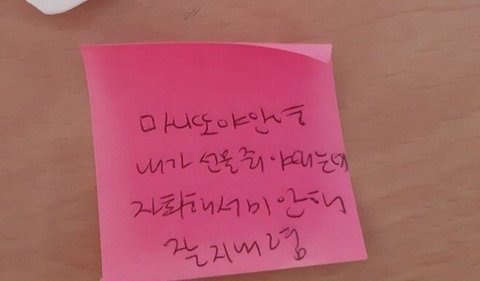 마니또야안녕
내가 선물줘야되는데
자퇴해서미안해
잘지내렴